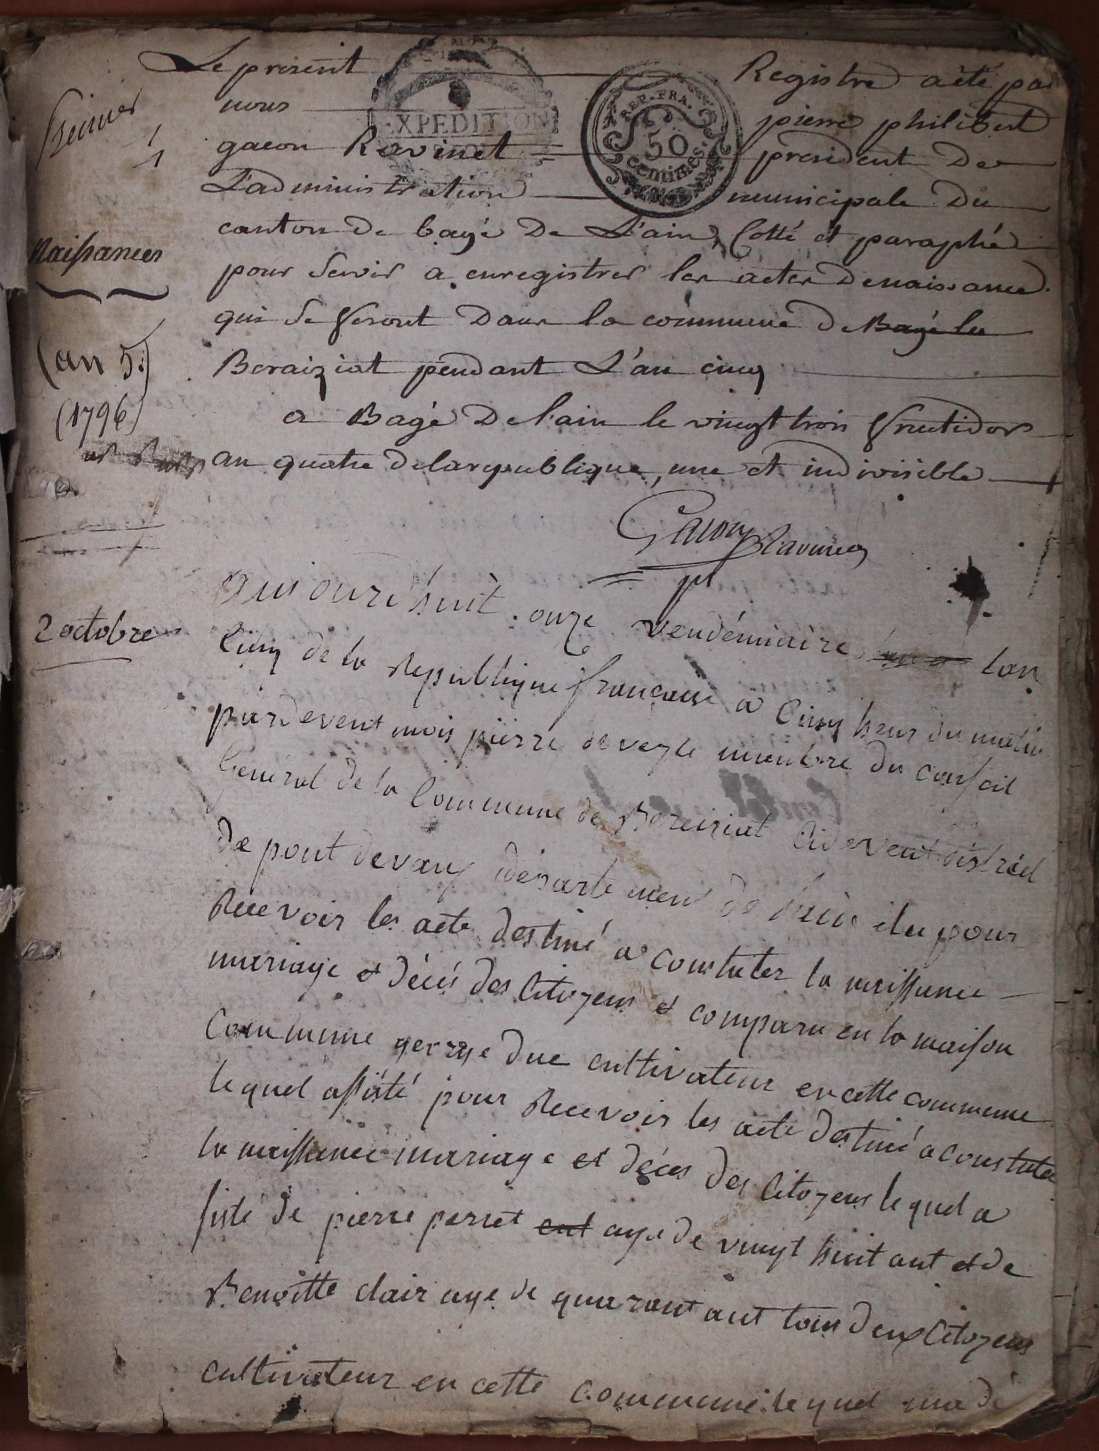 Le present Registre a été par
nous pierre philibert
gacon Ravinet president de
L'administration municipale Du
canton de bagé De L'ain, Cotté et paraphé
pour servir a enregistrer les actes De naissance
qui se feront Dans la commune de Bagé la
Beraiziat pendant L'an cinq
a Bagé De l'ain le vingt trois fructidor
an quatre de la republique, une et indivisible
Gacon Ravinet
pt
premier
1
Naissances
(an 5:)
(1796)
2 octobre
EXPEDITION
REP. FRA.
50
centimes.
aujourdhuit onze vendémiaire lan
Cinq de la Republique francaise a Cinq heur du matin
pardevent mois pierre deveyle membre du conseil
General de la Commune de Bereiziat Cidevent district
de pont devaux département de lain elu pour
Recevoir les acte destiné a constater la naissance
mariage et décés des Citoyens et comparu en la maison
Commune george Duc cultivateur en cette commune
lequel assisté pour Recevoir les acte destiné a constater
la naissance mariage et déces des Citoyens lequel a
sisté de pierre perret ayé de vingt huit ant et de
Benoitte clair ayé de quarant ant tous deux Citoyens
cultivateur en cette commune lequel ma dé